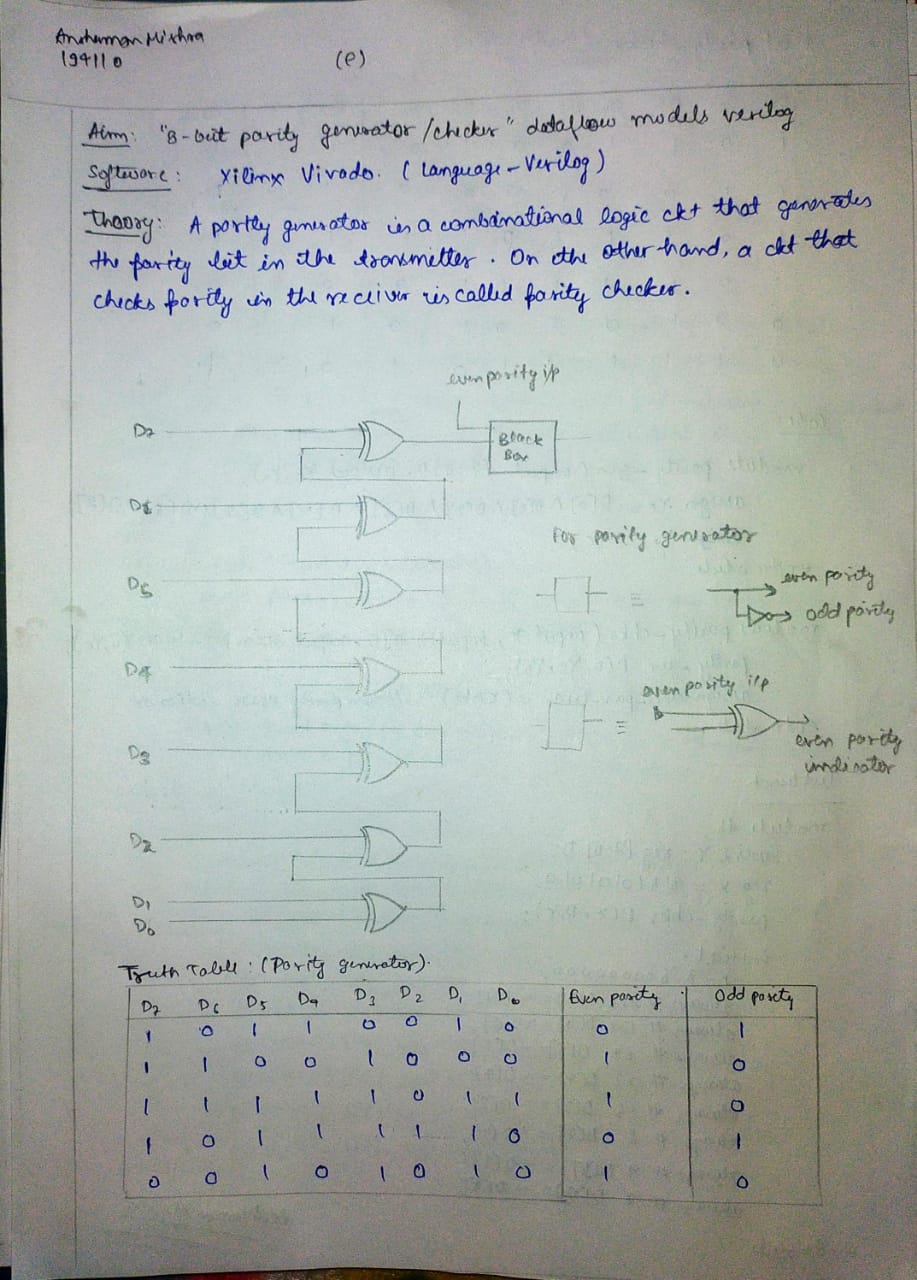 Anshuman Mishra
194110
(e)
Aim: "8-bit parity generator/checker" dataflow models verilog
Software: Xilinx Vivado. (Language-Verilog)
Theory: A parity generator is a combinational logic ckt that generates
the parity bit in the transmitter. On the other hand, a ckt that
checks parity in the reciver is called parity checker.
even parity i/p
D7
Black
Box
D6
For parity generator
D5
even parity
≡
odd parity
D4
even parity i/p
≡
even parity
indicator
D3
D2
D1
D0
Truth Table: (Parity generator).
D7 D6 D5 D4 D3 D2 D1 D0 Even parity Odd parity
1 0 1 1 0 0 1 0 0 1
1 1 0 0 1 0 0 0 1 0
1 1 1 1 1 0 1 1 1 0
1 0 1 1 1 1 1 0 0 1
0 0 1 0 1 0 1 0 1 0